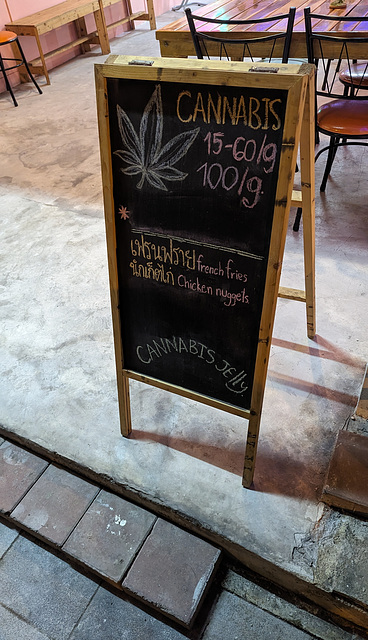 CANNABIS
15-60/g
100/g
*
เฟรนฟราย french fries
นักเก็ตไก่ Chicken nuggels
CANNABIS Jelly